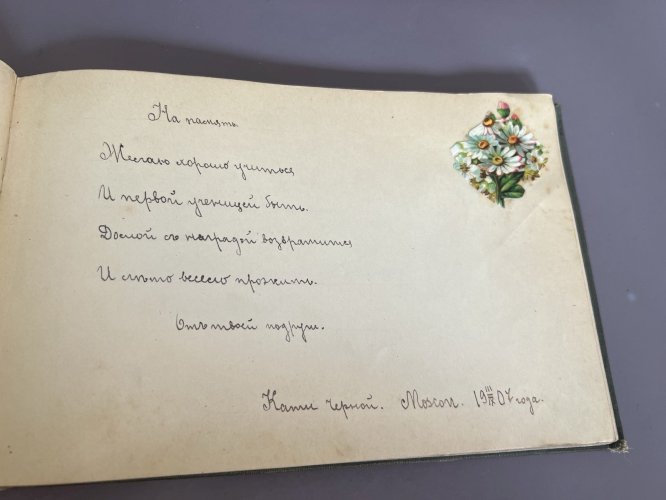 На память
Желаю хорошо учиться
И первой ученицей быть.
Домой съ наградой возвратится
И лѣто весело прожить.
Отъ твоей подруги.
Кати Черной. 19 III/IX 07 года.